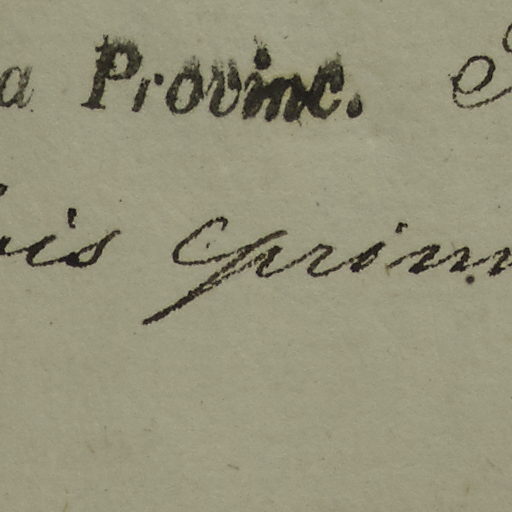 a Provinc.
is prim